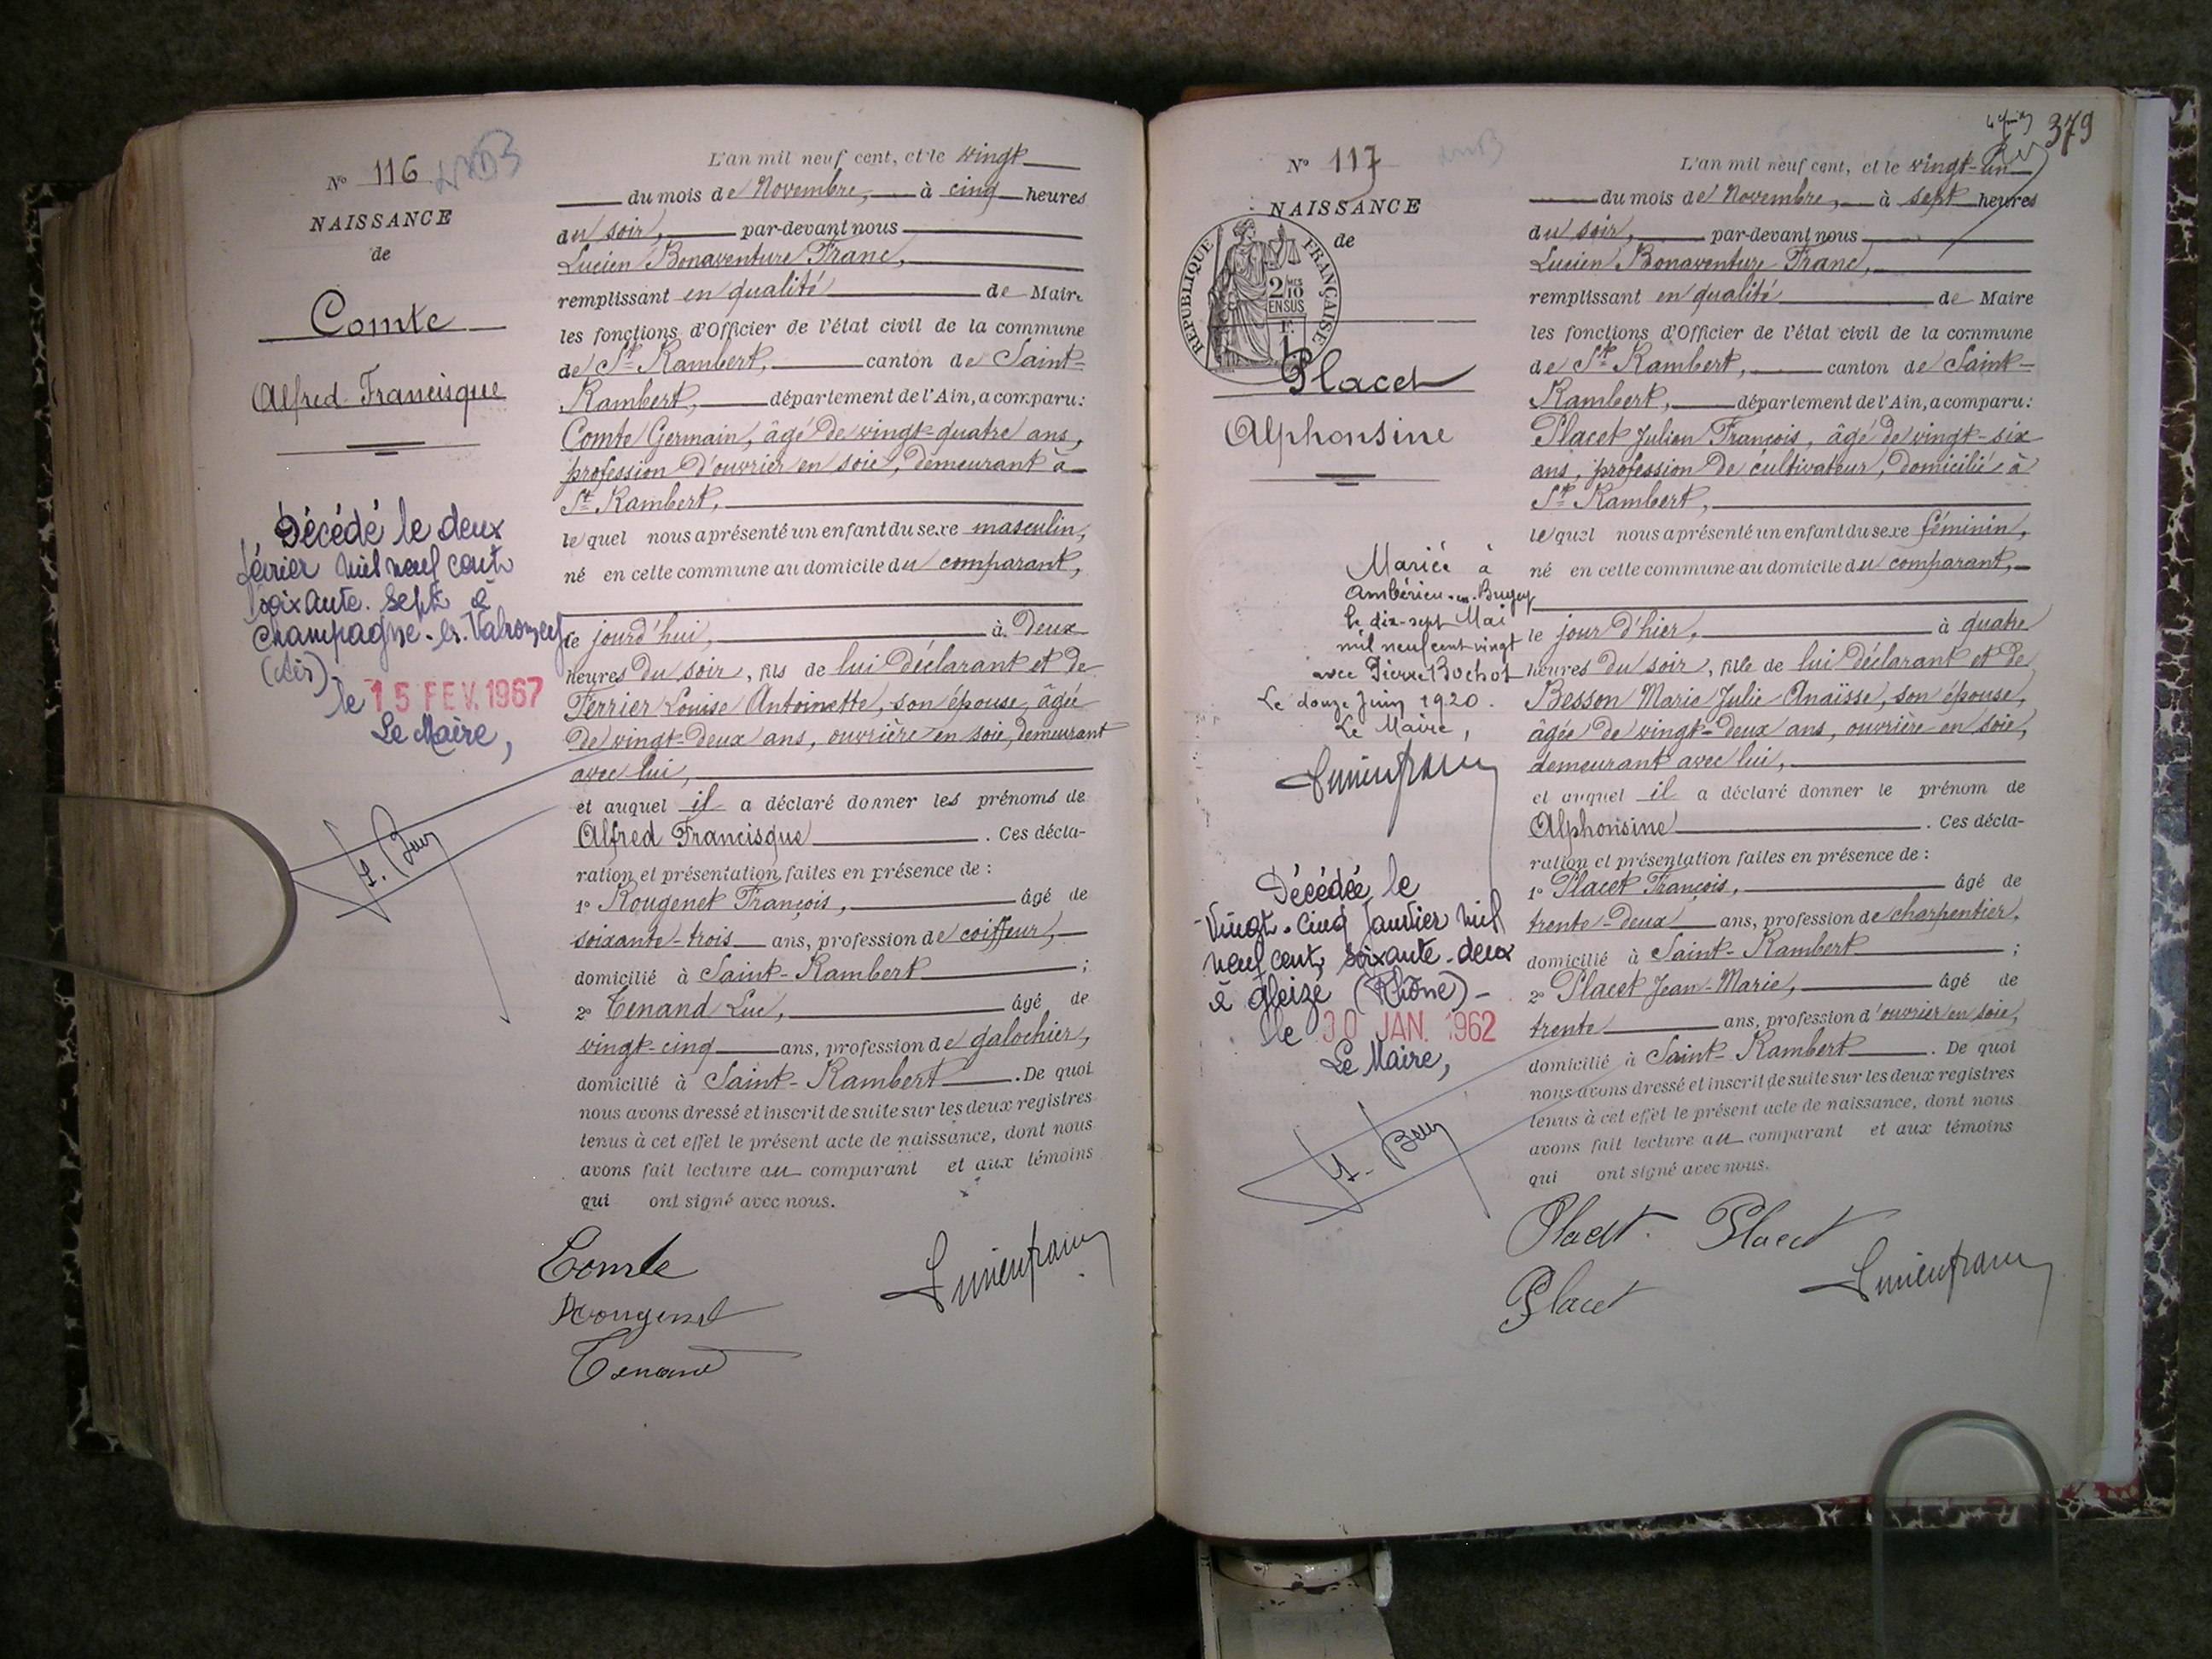 N° 116
NAISSANCE
de
Comte
Alfred Francisque
Décédé le deux
février mil neuf cent
soixante-sept à
Champagne-en-Valromey
(Ain)
le 15 FEV. 1967
Le Maire,
L'an mil neuf cent, et le vingt
du mois de Novembre, à cinq heures
du soir, par-devant nous
Lucien Bonaventure Franc,
remplissant en qualité de Maire
les fonctions d'Officier de l'état civil de la commune
de St Rambert, canton de Saint-
Rambert, département de l'Ain, a comparu:
Comte Germain, âgé de vingt-quatre ans,
profession d'ouvrier en soie, demeurant à
St Rambert,
lequel nous a présenté un enfant du sexe masculin,
né en cette commune au domicile du comparant,
ce jourd'hui, à deux
heures du soir, fils de lui déclarant et de
Ferrier Louise Antoinette, son épouse, âgée
de vingt-deux ans, ouvrière en soie, demeurant
avec lui,
et auquel il a déclaré donner les prénoms de
Alfred Francisque. Ces décla-
ration et présentation faites en présence de :
1° Rougenet François, âgé de
soixante-trois ans, profession de coiffeur,
domicilié à Saint-Rambert ;
2° Tenand Luc, âgé de
vingt-cinq ans, profession de galochier,
domicilié à Saint-Rambert. De quoi
nous avons dressé et inscrit de suite sur les deux registres
tenus à cet effet le présent acte de naissance, dont nous
avons fait lecture au comparant et aux témoins
qui ont signé avec nous.
Comte
Rougenet
Tenand
Lucien Franc
379
N° 117
NAISSANCE
de
REPUBLIQUE FRANÇAISE
2/10 EN SUS
Placet
Alphonsine
Mariée à
Ambérieu-en-Bugey
le dix-sept Mai
mil neuf cent vingt
avec Pierre Bochot
Le douze Juin 1920.
Le Maire,
Lucien Franc
Décédée le
vingt-cinq Janvier mil
neuf cent soixante-deux
à Gleizé (Rhône)
le 30 JAN. 1962
Le Maire,
L'an mil neuf cent, et le vingt-un
du mois de Novembre, à sept heures
du soir, par-devant nous
Lucien Bonaventure Franc,
remplissant en qualité de Maire
les fonctions d'Officier de l'état civil de la commune
de St Rambert, canton de Saint-
Rambert, département de l'Ain, a comparu:
Placet Julien François, âgé de vingt-six
ans, profession de cultivateur, domicilié à
St Rambert,
lequel nous a présenté un enfant du sexe féminin,
né en cette commune au domicile du comparant,
le jour d'hier, à quatre
heures du soir, fille de lui déclarant et de
Besson Marie Julie Anaïsse, son épouse,
âgée de vingt-deux ans, ouvrière en soie,
demeurant avec lui,
et auquel il a déclaré donner le prénom de
Alphonsine. Ces décla-
ration et présentation faites en présence de :
1° Placet François, âgé de
trente-deux ans, profession de charpentier,
domicilié à Saint-Rambert ;
2° Placet Jean-Marie, âgé de
trente ans, profession d'ouvrier en soie,
domicilié à Saint-Rambert. De quoi
nous avons dressé et inscrit de suite sur les deux registres
tenus à cet effet le présent acte de naissance, dont nous
avons fait lecture au comparant et aux témoins
qui ont signé avec nous.
Placet Placet
Placet
Lucien Franc